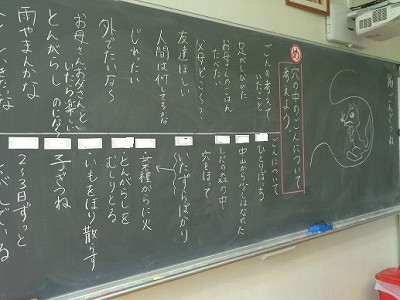 ごんぎつね
め
穴の中のごんについて
考えよう。
ごんの考えて
いたこと
足がしびれた
お母さんのごはん
たべたい
父母どこ〜?
友達ほしい
人間は何してるかな
じれったい
外でたいな〜
お母さんお父さんと
いたら楽しい
とんがらし
雨やまんかな
ごんについて
ひとりぼっち
中山から少しはなれた
しだの森の中
穴をほって
いたずらばかり
菜種がらに火
とんがらしを
むしりとる
いもをほり散らす
子ぎつね
2〜3日ずっと